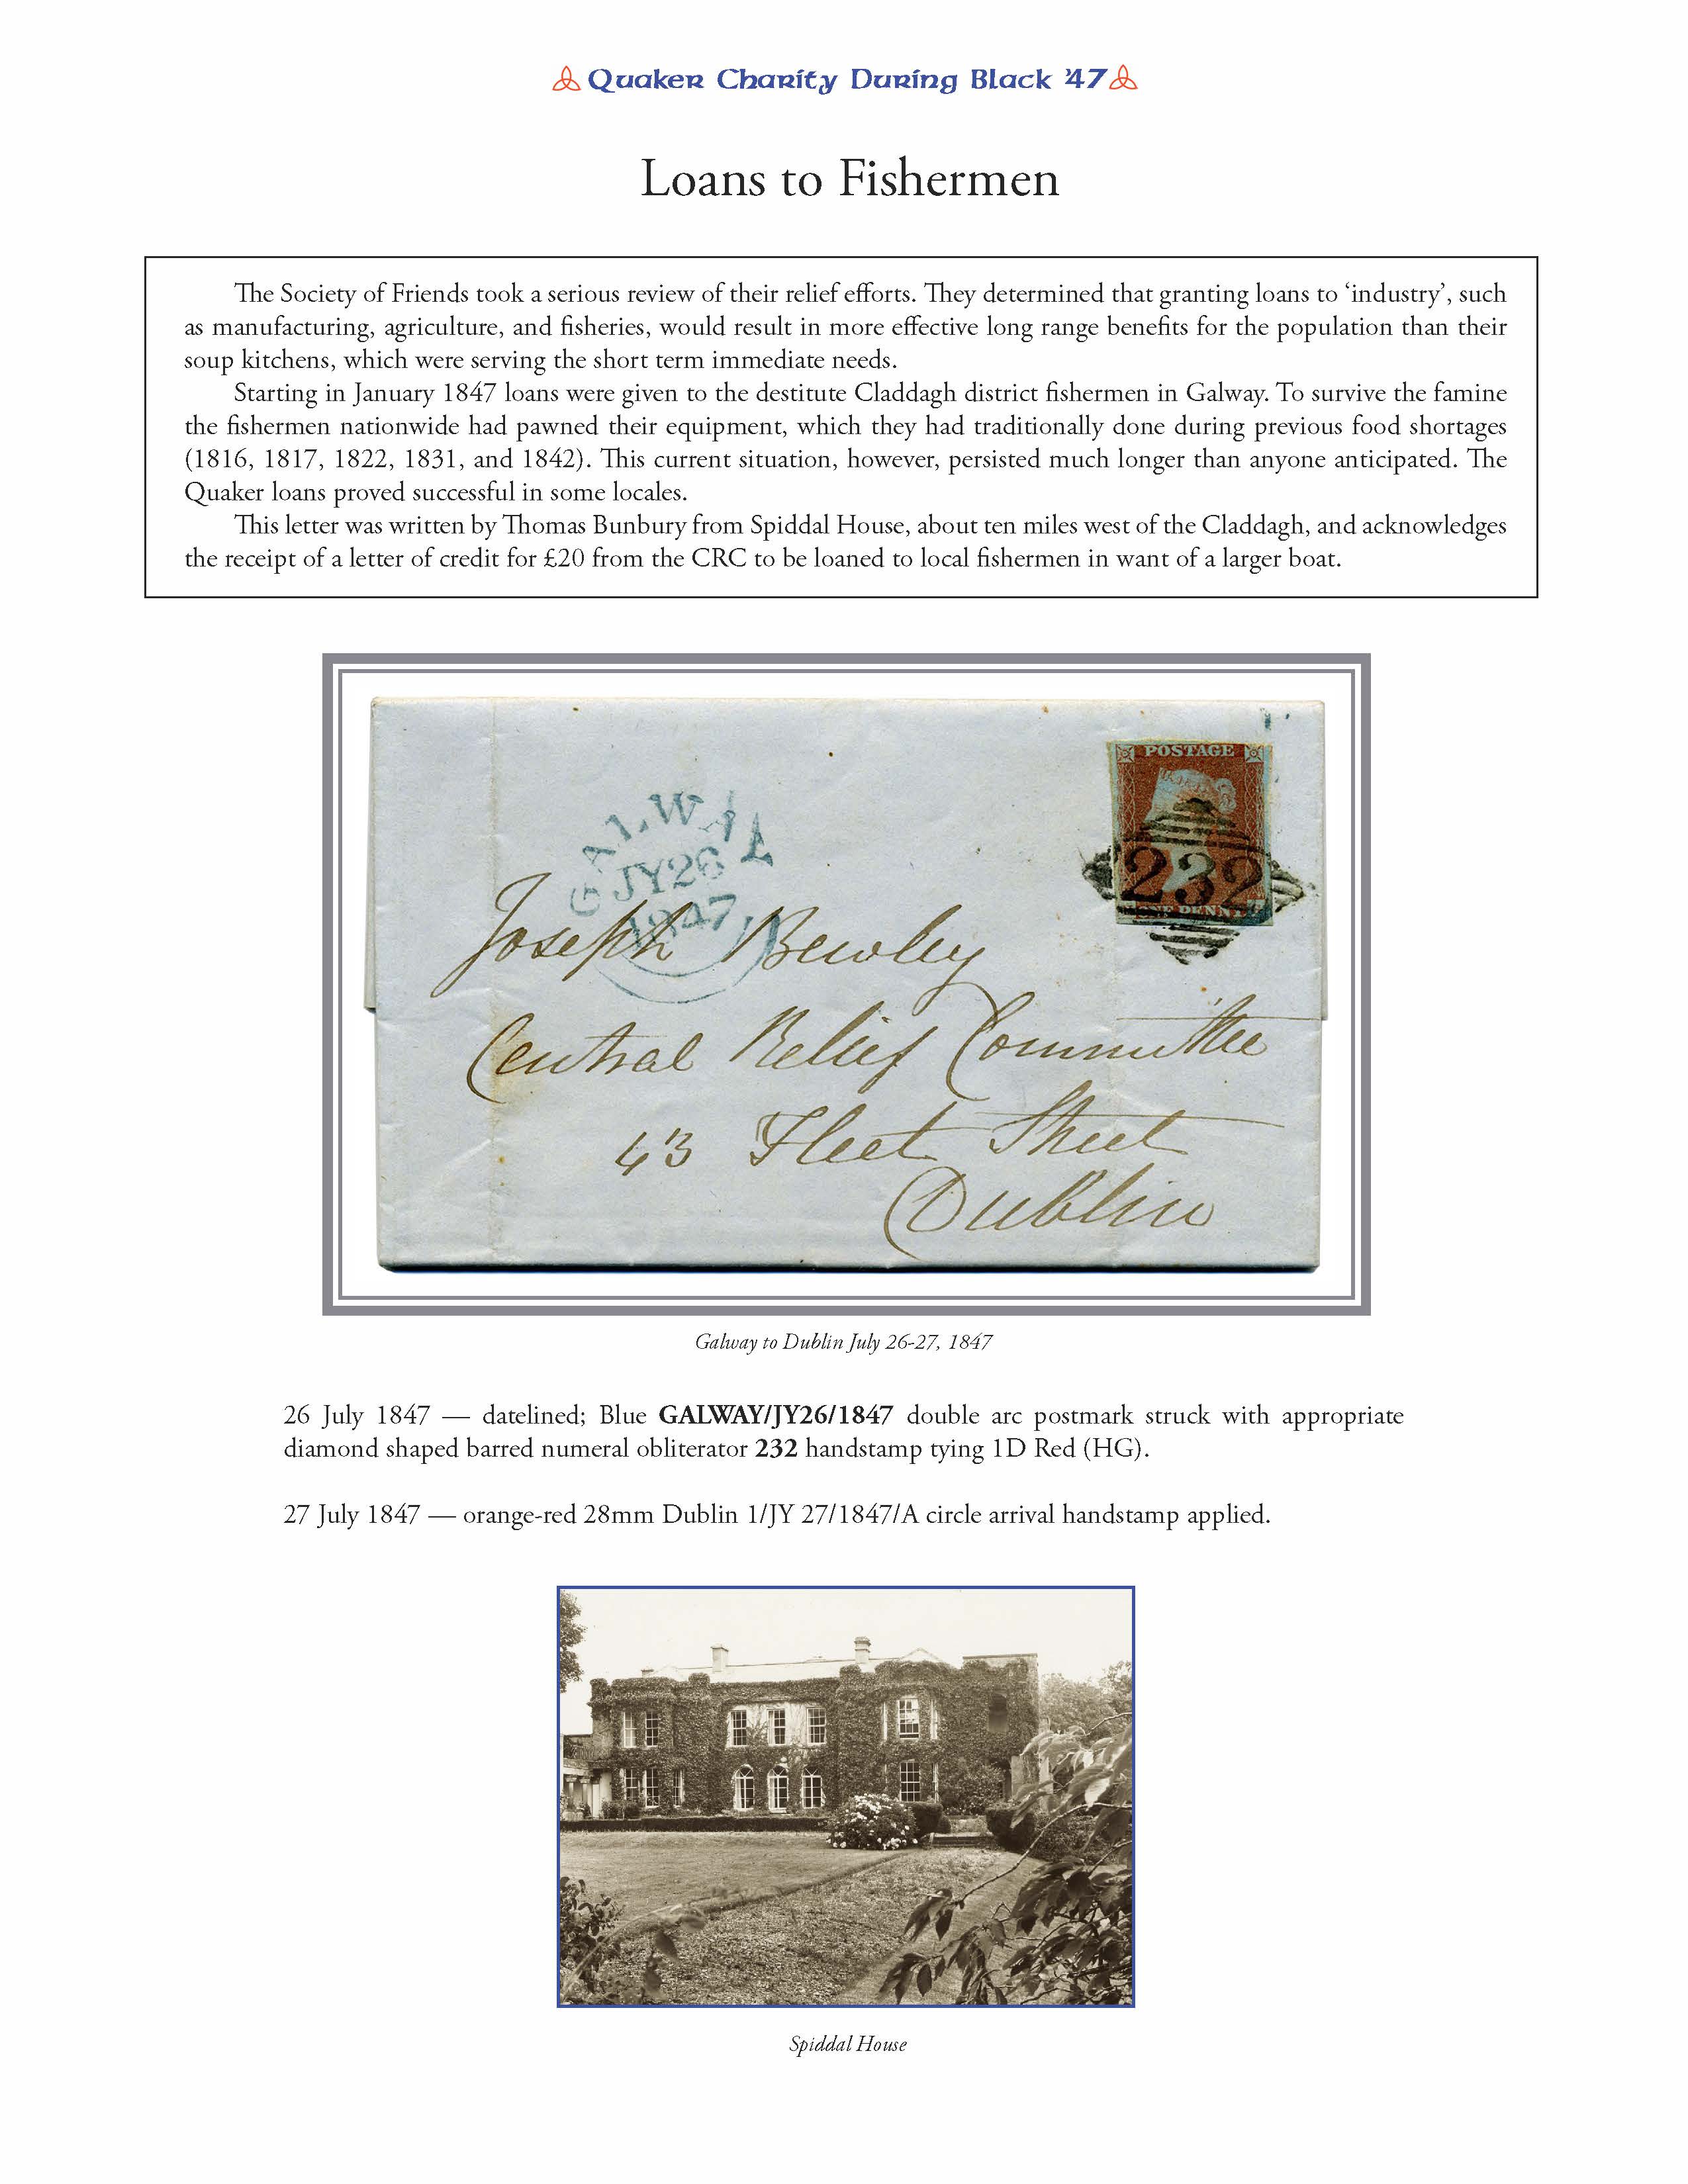 Quaker Charity During Black '47
Loans to Fishermen
The Society of Friends took a serious review of their relief efforts. They determined that granting loans to ‘industry’, such
as manufacturing, agriculture, and fisheries, would result in more effective long range benefits for the population than their
soup kitchens, which were serving the short term immediate needs.
Starting in January 1847 loans were given to the destitute Claddagh district fishermen in Galway. To survive the famine
the fishermen nationwide had pawned their equipment, which they had traditionally done during previous food shortages
(1816, 1817, 1822, 1831, and 1842). This current situation, however, persisted much longer than anyone anticipated. The
Quaker loans proved successful in some locales.
This letter was written by Thomas Bunbury from Spiddal House, about ten miles west of the Claddagh, and acknowledges
the receipt of a letter of credit for £20 from the CRC to be loaned to local fishermen in want of a larger boat.
POSTAGE
GALWAY
JY26
1847
232
ONE PENNY
Joseph Bewley
Central Relief Committee
43 Fleet Street
Dublin
Galway to Dublin July 26-27, 1847
26 July 1847 — datelined; Blue GALWAY/JY26/1847 double arc postmark struck with appropriate
diamond shaped barred numeral obliterator 232 handstamp tying 1D Red (HG).
27 July 1847 — orange-red 28mm Dublin 1/JY 27/1847/A circle arrival handstamp applied.
Spiddal House